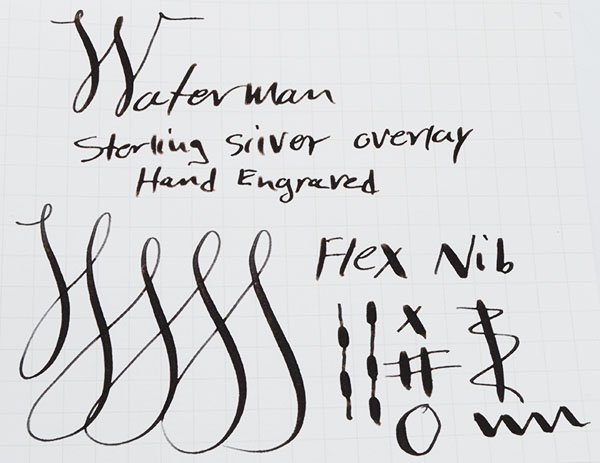 Waterman
Sterling silver overlay
Hand Engraved
Flex Nib